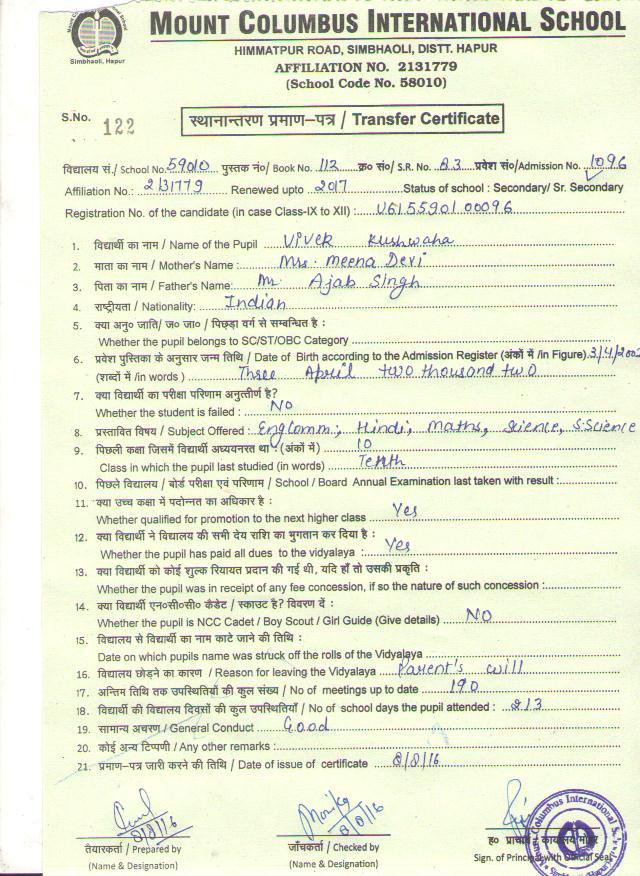 Simbhaoli, Hapur
MOUNT COLUMBUS INTERNATIONAL SCHOOL
HIMMATPUR ROAD, SIMBHAOLI, DISTT. HAPUR
AFFILIATION NO. 2131779
(School Code No. 58010)
S.No. 122
स्थानान्तरण प्रमाण–पत्र / Transfer Certificate
विद्यालय सं./ School No. 59010 पुस्तक नं०/ Book No. 112 क्र० सं०/ S.R. No. 83 प्रवेश सं०/Admission No. 1096
Affiliation No.: 2131779 Renewed upto 2017 Status of school : Secondary/ Sr. Secondary
Registration No. of the candidate (in case Class-IX to XII) : U6155901 00096
1. विद्यार्थी का नाम / Name of the Pupil Vivek Kushwaha
2. माता का नाम / Mother's Name : Mrs. Meena Devi
3. पिता का नाम / Father's Name: Mr. Ajab Singh
4. राष्ट्रीयता / Nationality: Indian
5. क्या अनु० जाति/ ज० जा० / पिछड़ा वर्ग से सम्बन्धित है :
Whether the pupil belongs to SC/ST/OBC Category
6. प्रवेश पुस्तिका के अनुसार जन्म तिथि / Date of Birth according to the Admission Register (अंकों में /in Figure). 3/4/2002
(शब्दों में /in words ) Three April two thousand two
7. क्या विद्यार्थी का परीक्षा परिणाम अनुत्तीर्ण है?
Whether the student is failed : NO
8. प्रस्तावित विषय / Subject Offered : Eng Comm., Hindi, Maths, Science, S.Science
9. पिछली कक्षा जिसमें विद्यार्थी अध्ययनरत था : (अंकों में ) 10
Class in which the pupil last studied (in words) Tenth
10. पिछले विद्यालय / बोर्ड परीक्षा एवं परिणाम / School / Board Annual Examination last taken with result :
11. क्या उच्च कक्षा में पदोन्नत का अधिकार है :
Whether qualified for promotion to the next higher class Yes
12. क्या विद्यार्थी ने विद्यालय की सभी देय राशि का भुगतान कर दिया है :
Whether the pupil has paid all dues to the vidyalaya : Yes
13. क्या विद्यार्थी को कोई शुल्क रियायत प्रदान की गई थी, यदि हाँ तो उसकी प्रकृति :
Whether the pupil was in receipt of any fee concession, if so the nature of such concession :
14. क्या विद्यार्थी एन०सी०सी० कैडेट / स्काउट है? विवरण दें :
Whether the pupil is NCC Cadet / Boy Scout / Girl Guide (Give details) NO
15. विद्यालय से विद्यार्थी का नाम काटे जाने की तिथि :
Date on which pupils name was struck off the rolls of the Vidyalaya
16. विद्यालय छोड़ने का कारण / Reason for leaving the Vidyalaya Parent's will
17. अन्तिम तिथि तक उपस्थितियों की कुल संख्य / No of meetings up to date 190
18. विद्यार्थी की विद्यालय दिवसों की कुल उपस्थितियाँ / No of school days the pupil attended : 213
19. सामान्य अचरण / General Conduct : Good
20. कोई अन्य टिप्पणी / Any other remarks :
21. प्रमाण-पत्र जारी करने की तिथि / Date of issue of certificate 8/8/16
8/8/16 Monika 8/8/16
तैयारकर्ता / Prepared by जाँचकर्ता / Checked by ह० प्राचार्य कार्यालय मोहर
(Name & Designation) (Name & Designation) Sign. of Principal with Official Seal
Columbus International